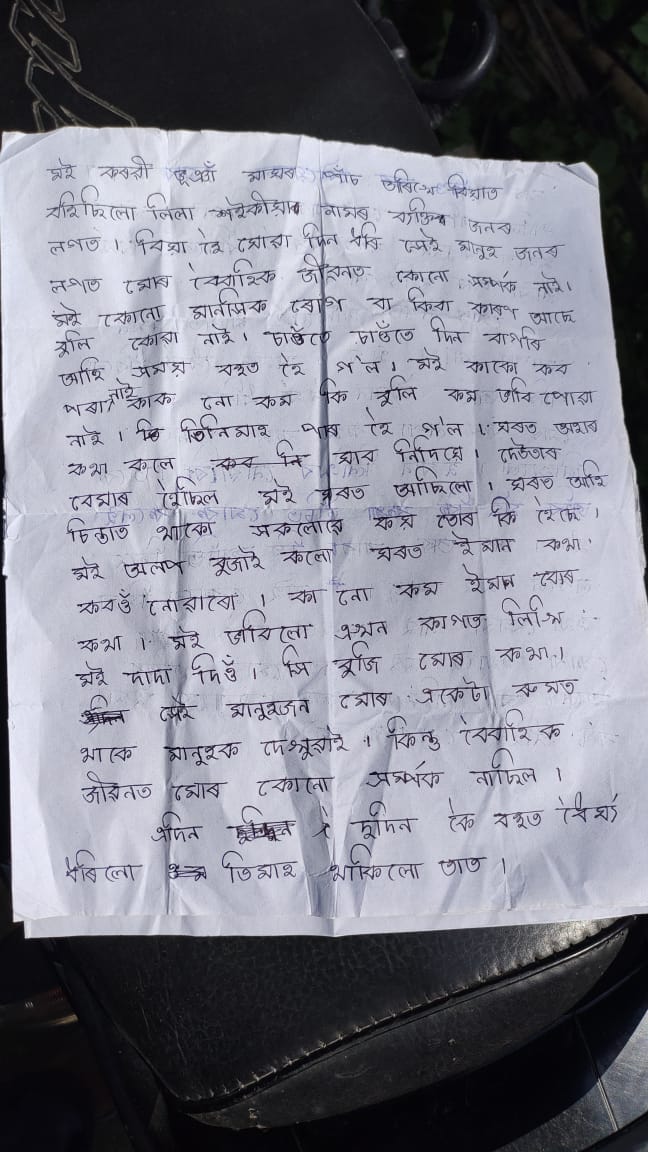 মই কৰবী ভূঞাঁ মাঘৰ পাঁচ তাৰিখে বিয়াত
বহিছিলো লিলা শইকীয়াৰ নামৰ ব্যক্তি জনৰ
লগত । বিয়া হৈ যোৱা দিন ধৰি সেই মানুহ জনৰ
লগত মোৰ বৈবাহিক জীৱনত কোনো সম্পৰ্ক নাই।
মই কোনো মানসিক ৰোগ বা কিবা কাৰণ আছে
বুলি কোৱা নাই । চাওঁতে চাওঁতে দিন বাগৰি
আহি সময় বহুত হৈ গ'ল । মই কাকো কব
পৰা নাই কাক নো কম কি বুলি কম ভাবি পোৱা
নাই । তিনিমাহ পাৰ হৈ গ'ল । ঘৰত অহাৰ
কথা কলে যাব নিদিয়ে । দেউতাৰ
বেমাৰ হৈছিল মই ঘৰত আছিলো । ঘৰত আহি
চিন্তাত থাকো সকলোৱে কয় তোৰ কি হৈছে ।
মই অলপ বুজাই কলো ঘৰত ইমান কথা
কবওঁ নোৱাৰো । কা নো কম ইমান বোৰ
কথা । মই ভাবিলো এখন কাগজত লিখি
মই দাদা দিওঁ । সি বুজি মোৰ কথা ।
সেই মানুহজন মোৰ একেটা ৰুমত
থাকে মানুহক দেখুৱাই । কিন্তু বৈবাহিক
জীৱনত মোৰ কোনো সম্পৰ্ক নাছিল ।
এদিন দুদিন কৈ বহুত ধৈৰ্য্য
ধৰিলো তিমাহ থাকিলো তাত ।